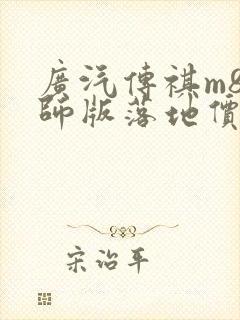 廣汽傳祺m8
師版落地價
宋治平